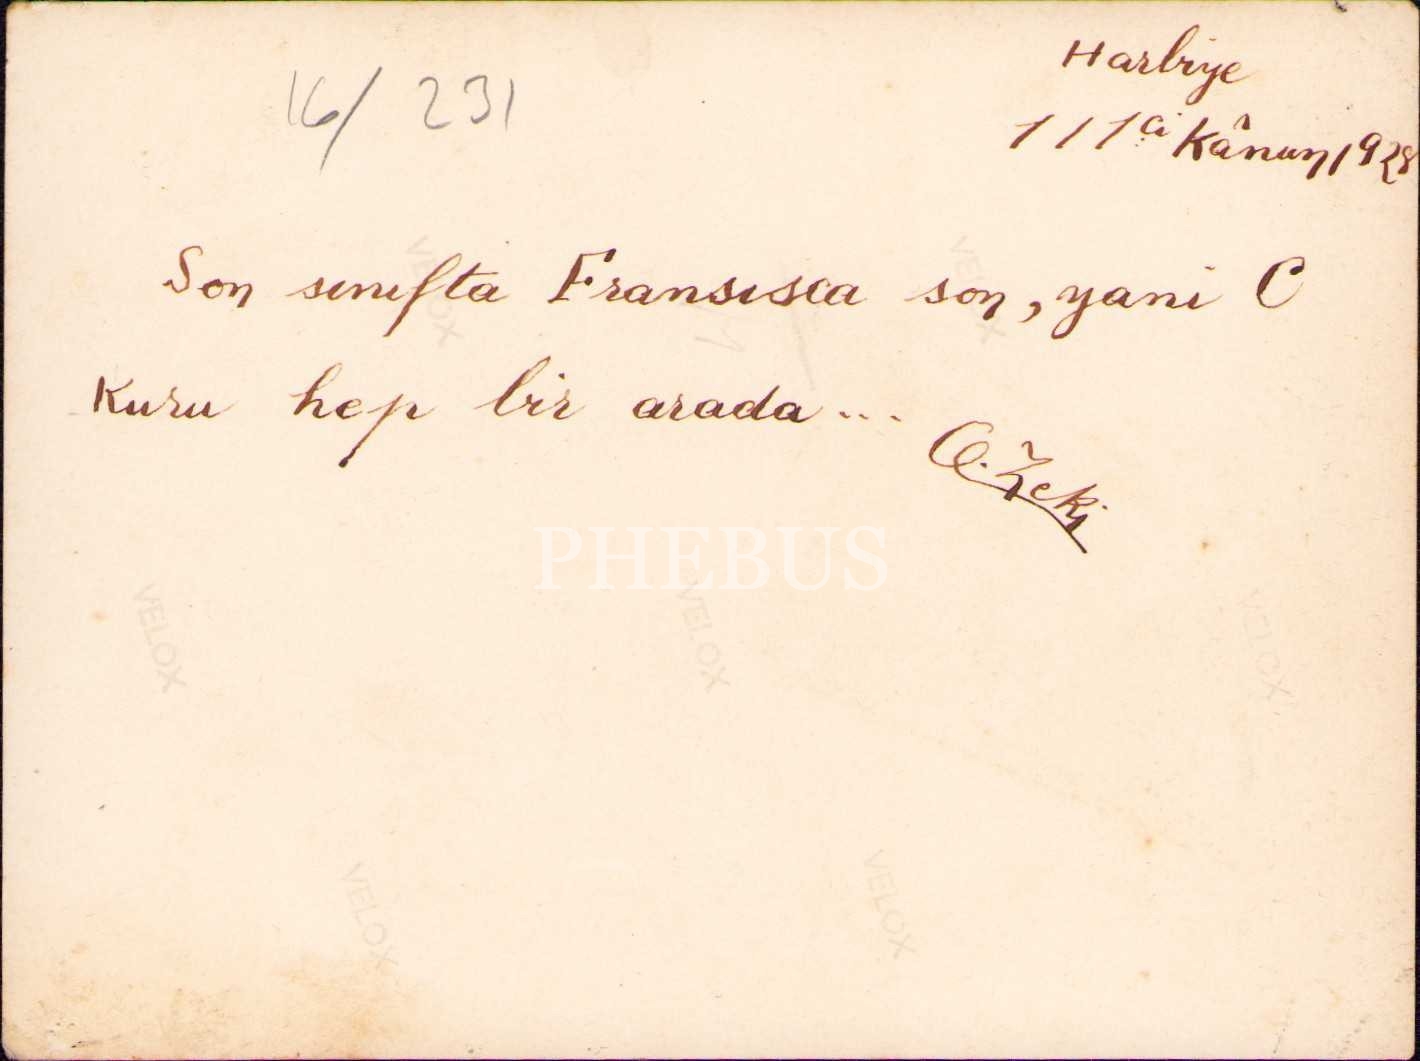 Harbiye
1 / 1 ci Kânun 1928
16/ 231
Son sınıfta Fransısca son, yani C
kuru hep bir arada...
O. Zeki
PHEBUS
VELOX
VELOX
VELOX
VELOX
VELOX
VELOX
VELOX